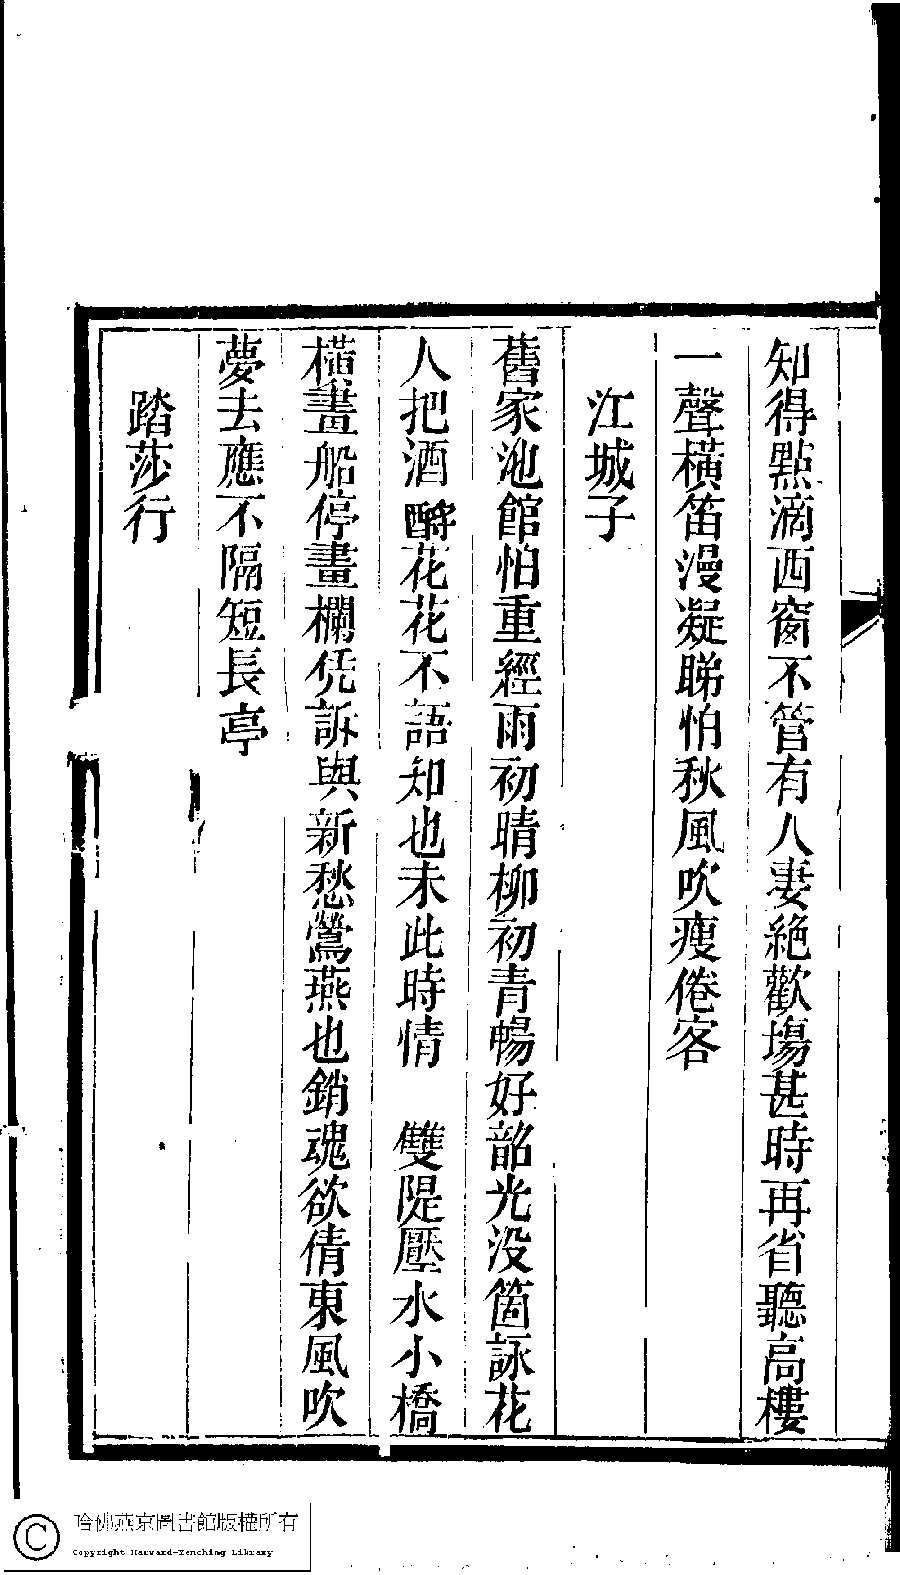 知得點滴西窗不管有人妻絶歡塲甚時再省聽高樓
一聲橫笛漫凝睇怕秋風吹瘦倦客
江城子
舊家池館怕重經雨初晴柳初青暢好韶光没箇詠花
人把酒酹花花不語知也未此時情　雙隄壓水小橋
橫畫船停畫欄凭訴與新愁鶯燕也銷魂欲倩東風吹
夢去應不隔短長亭
踏莎行
哈佛燕京圖書館版權所有
Copyright Harvard-Yenching Library